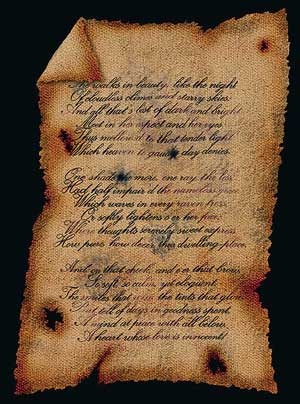 She walks in beauty, like the night
Of cloudless climes and starry skies
And all that's best of dark and bright
Meet in her aspect and her eyes
Thus mellow'd to that tender light
Which heaven to gaudy day denies.
One shade the more, one ray the less,
Had half impair'd the nameless grace
Which waves in every raven tress,
Or softly lightens o'er her face;
Where thoughts serenely sweet express
How pure, how dear, this dwelling-place.
And on that cheek, and o'er that brow,
So soft, so calm, yet eloquent,
The smiles that win, the tints that glow,
But tell of days in goodness spent,
A mind at peace with all below,
A heart whose love is innocent